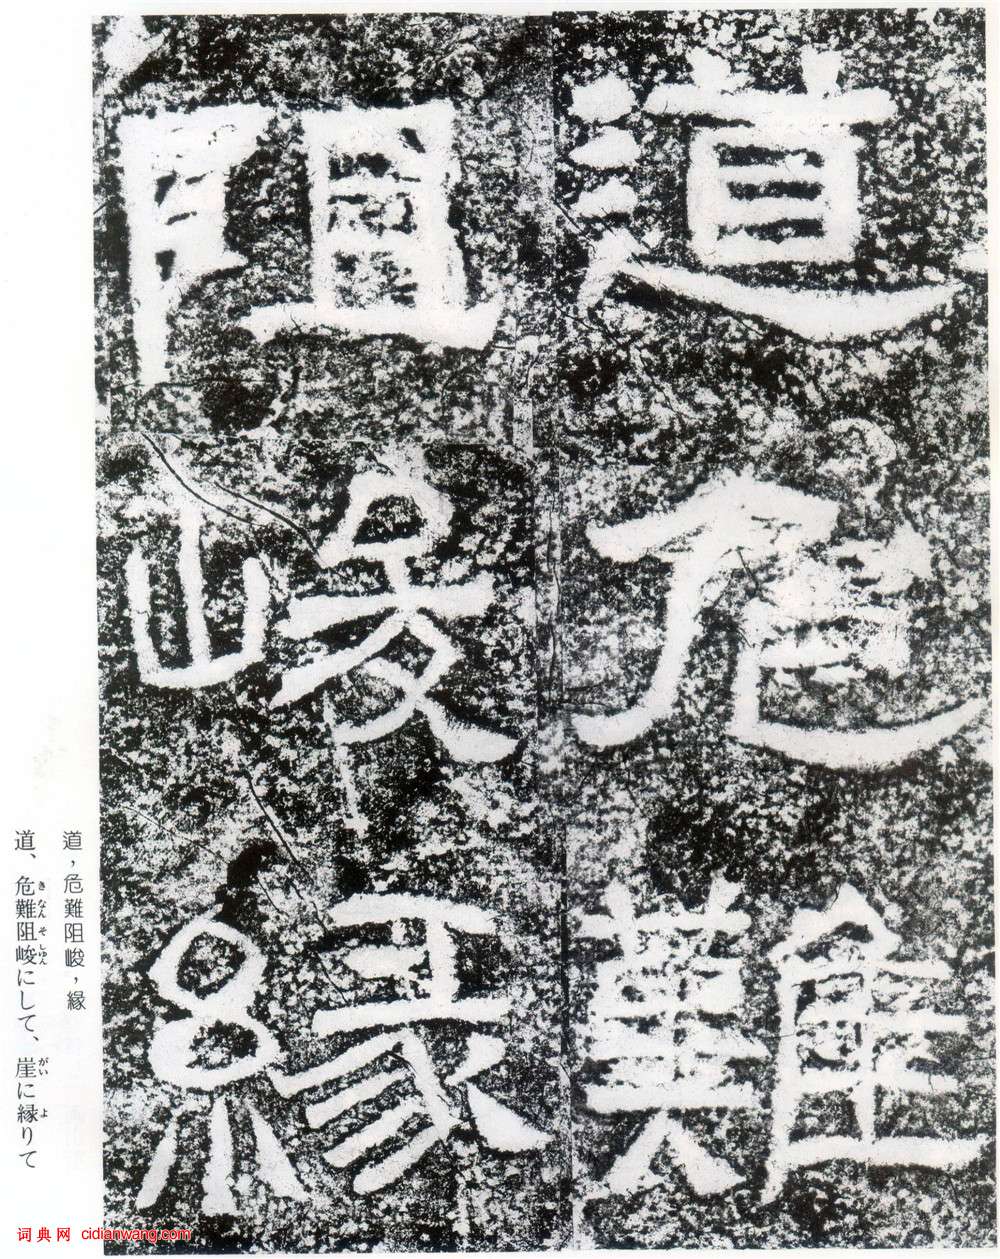 道危難
阻峻緣
道，危難阻峻，緣
道、危難阻峻にして、崖に縁りて
き なん そ しゅん がい よ
词典网 cidianwang.com